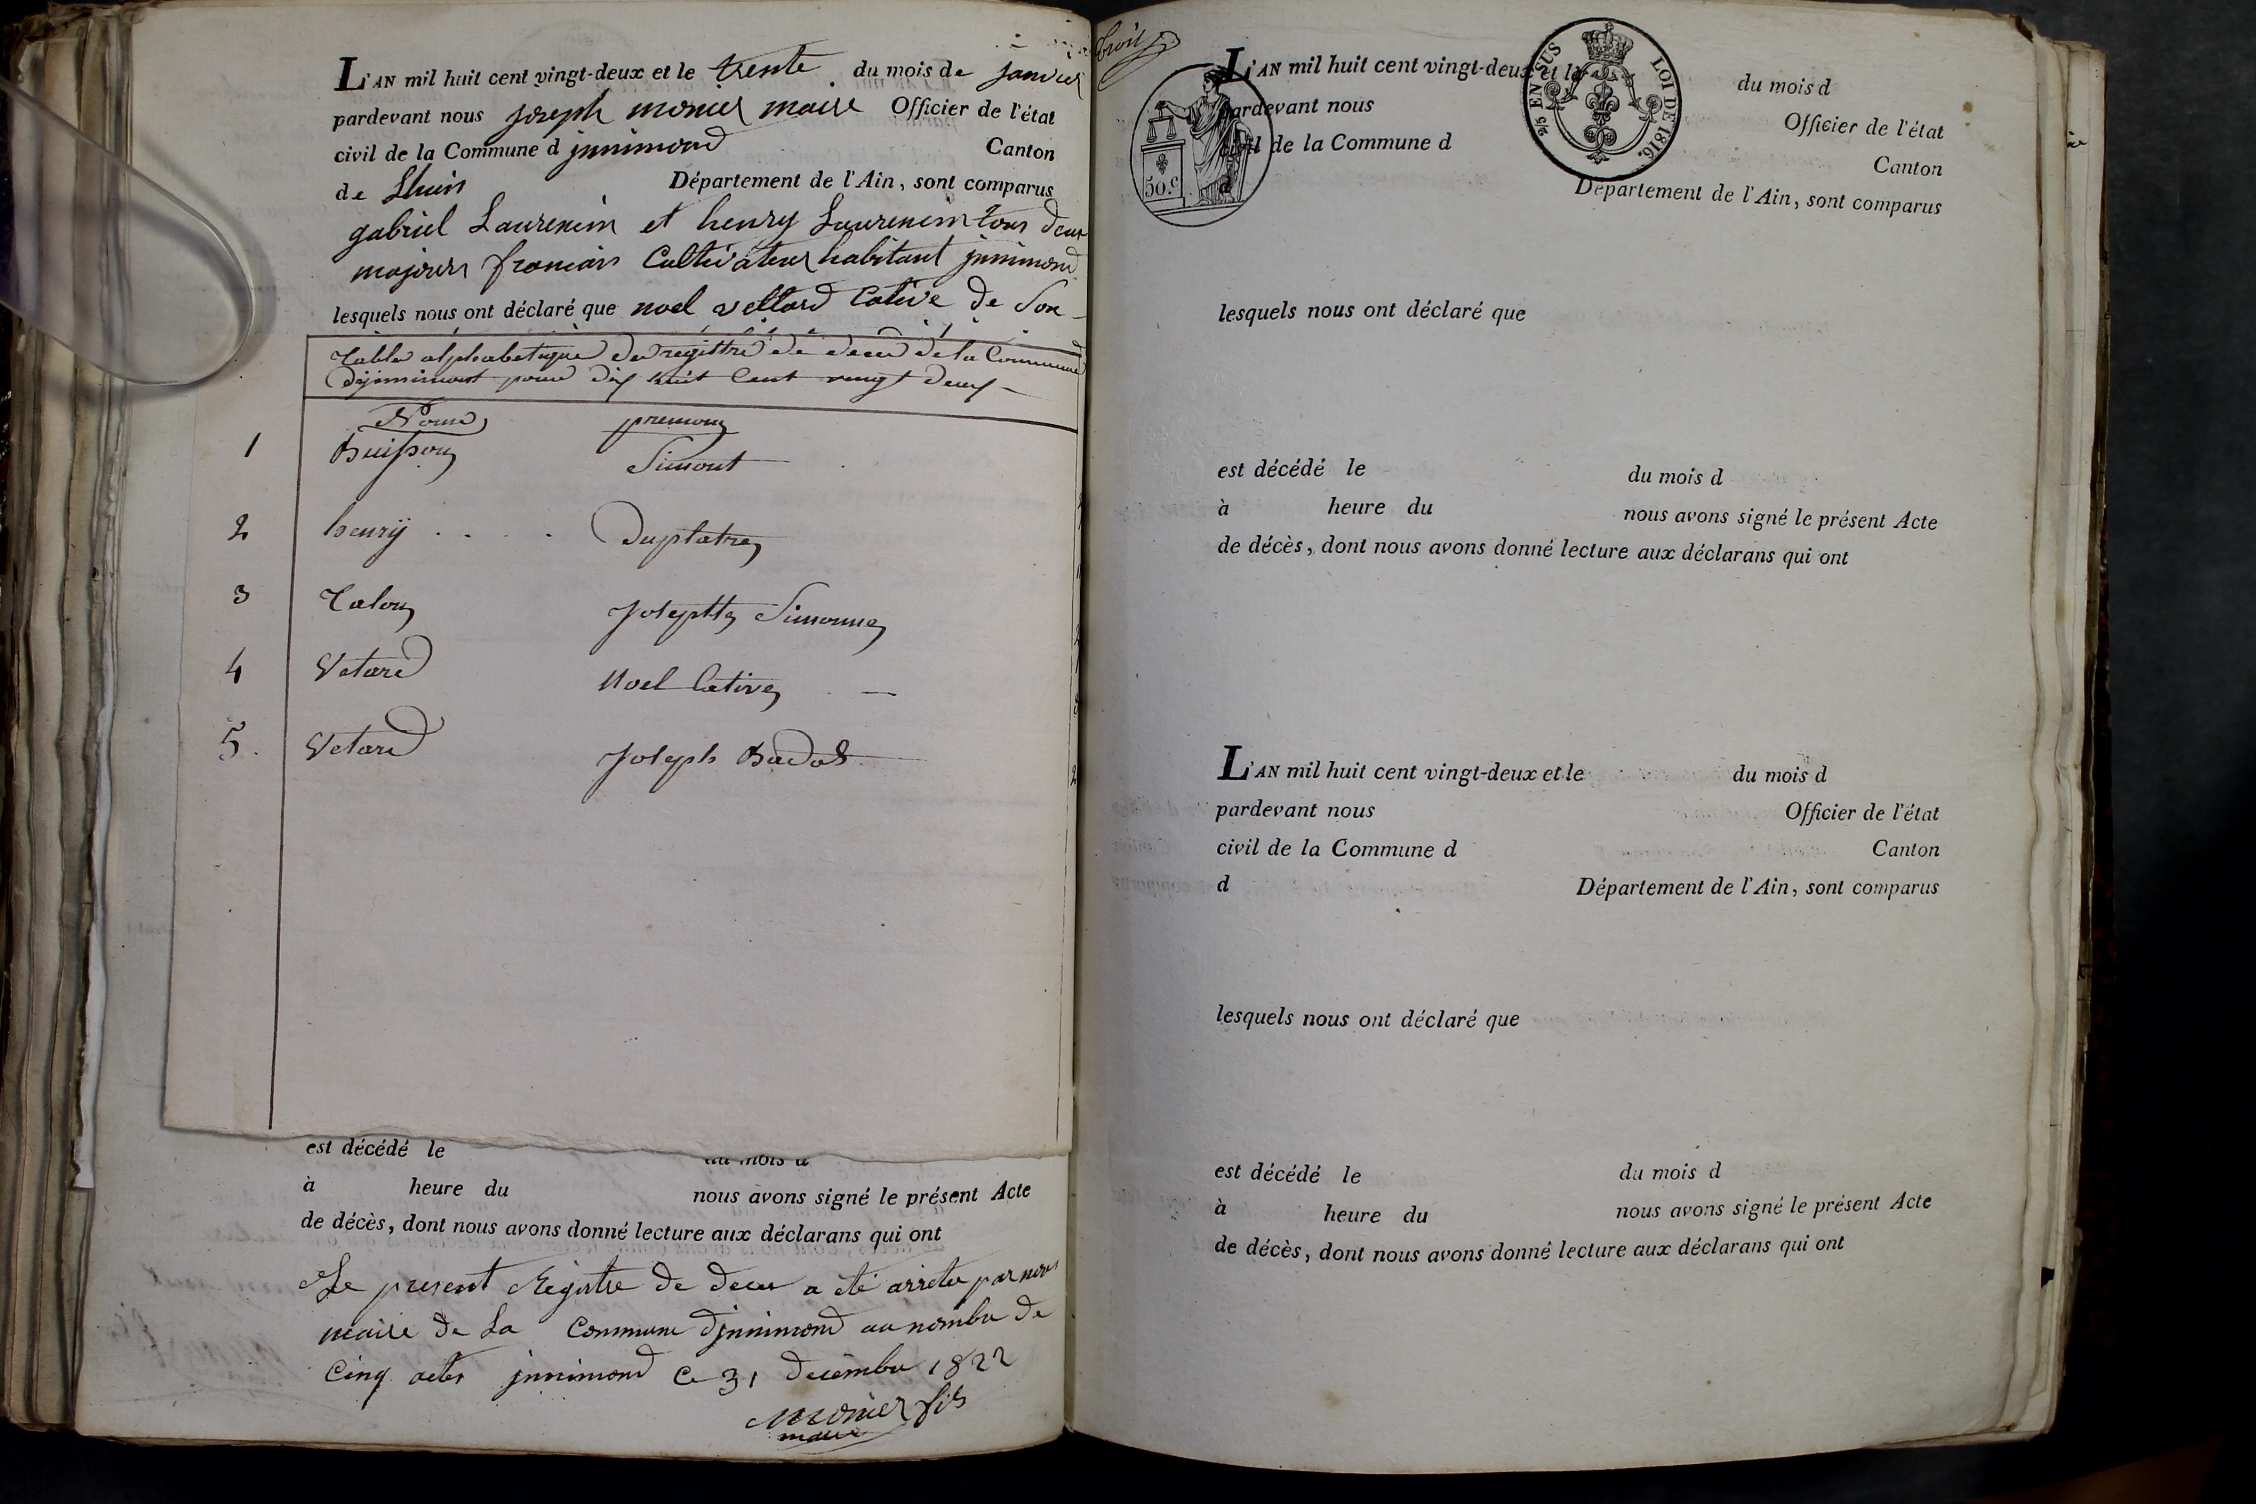 L'AN mil huit cent vingt-deux et le trente du mois de janvier
pardevant nous joseph monier maire Officier de l'état
civil de la Commune d jnnimond Canton
de Lhuis Département de l'Ain, sont comparus
gabriel Laurencin et henry Laurencin tous deux
majeurs francais Cultivateur habitant jnnimond
lesquels nous ont déclaré que noel vettard Cative de Son
Table alphabetique du registre de deces de la Commune
dijnnimont pour dix huit Cent vingt deux
Noms prenoms
1 Buisson Simont
2 henrij . . . . Duplatre
3 Talon Josephte Simonne
4 Vetard Noel Cative
5. Vetard Joseph Badol
est décédé le du mois d
à heure du nous avons signé le présent Acte
de décès, dont nous avons donné lecture aux déclarans qui ont
Le present Registre de deces a été arreté par nous
maire de La Commune djnnimond au nombre de
Cinq actes jnnimond Ce 31 decembre 1822
Monier fils
maire
L'AN mil huit cent vingt-deux et le du mois d
pardevant nous Officier de l'état
civil de la Commune d Canton
d Département de l'Ain, sont comparus
50.c
EN SUS LOI DE 1816.
lesquels nous ont déclaré que
est décédé le du mois d
à heure du nous avons signé le présent Acte
de décès, dont nous avons donné lecture aux déclarans qui ont
L'AN mil huit cent vingt-deux et le du mois d
pardevant nous Officier de l'état
civil de la Commune d Canton
d Département de l'Ain, sont comparus
lesquels nous ont déclaré que
est décédé le du mois d
à heure du nous avons signé le présent Acte
de décès, dont nous avons donné lecture aux déclarans qui ont